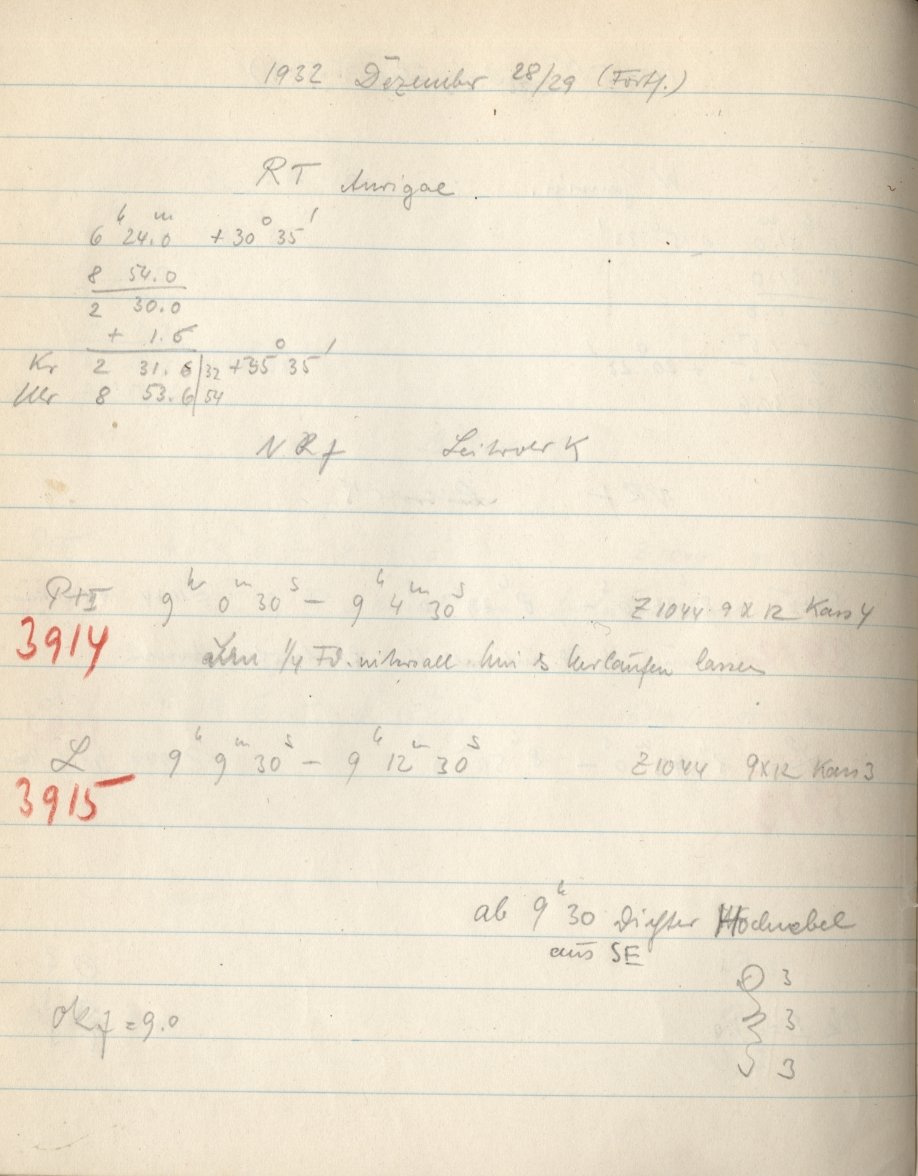 1932 Dezember 28/29 (Forts.)
RT Aurigae
6ʰ 24.0ᵐ +30° 35′
8 54.0
2 30.0
+ 1.6
Kr 2 31.6 | 32 +35° 35′
Uhr 8 53.6 | 54
N R f Leitrohr K
P+I 9ʰ 0ᵐ 30ˢ – 9ʰ 4ᵐ 30ˢ Z1044 9x12 Kass 4
3914
1/4 verlaufen lassen
L 9ʰ 9ᵐ 30ˢ – 9ʰ 12ᵐ 30ˢ Z1044 9x12 Kass 3
3915
ab 9ʰ 30 dichter Hochnebel
aus SE
3
3
3
= 9.0